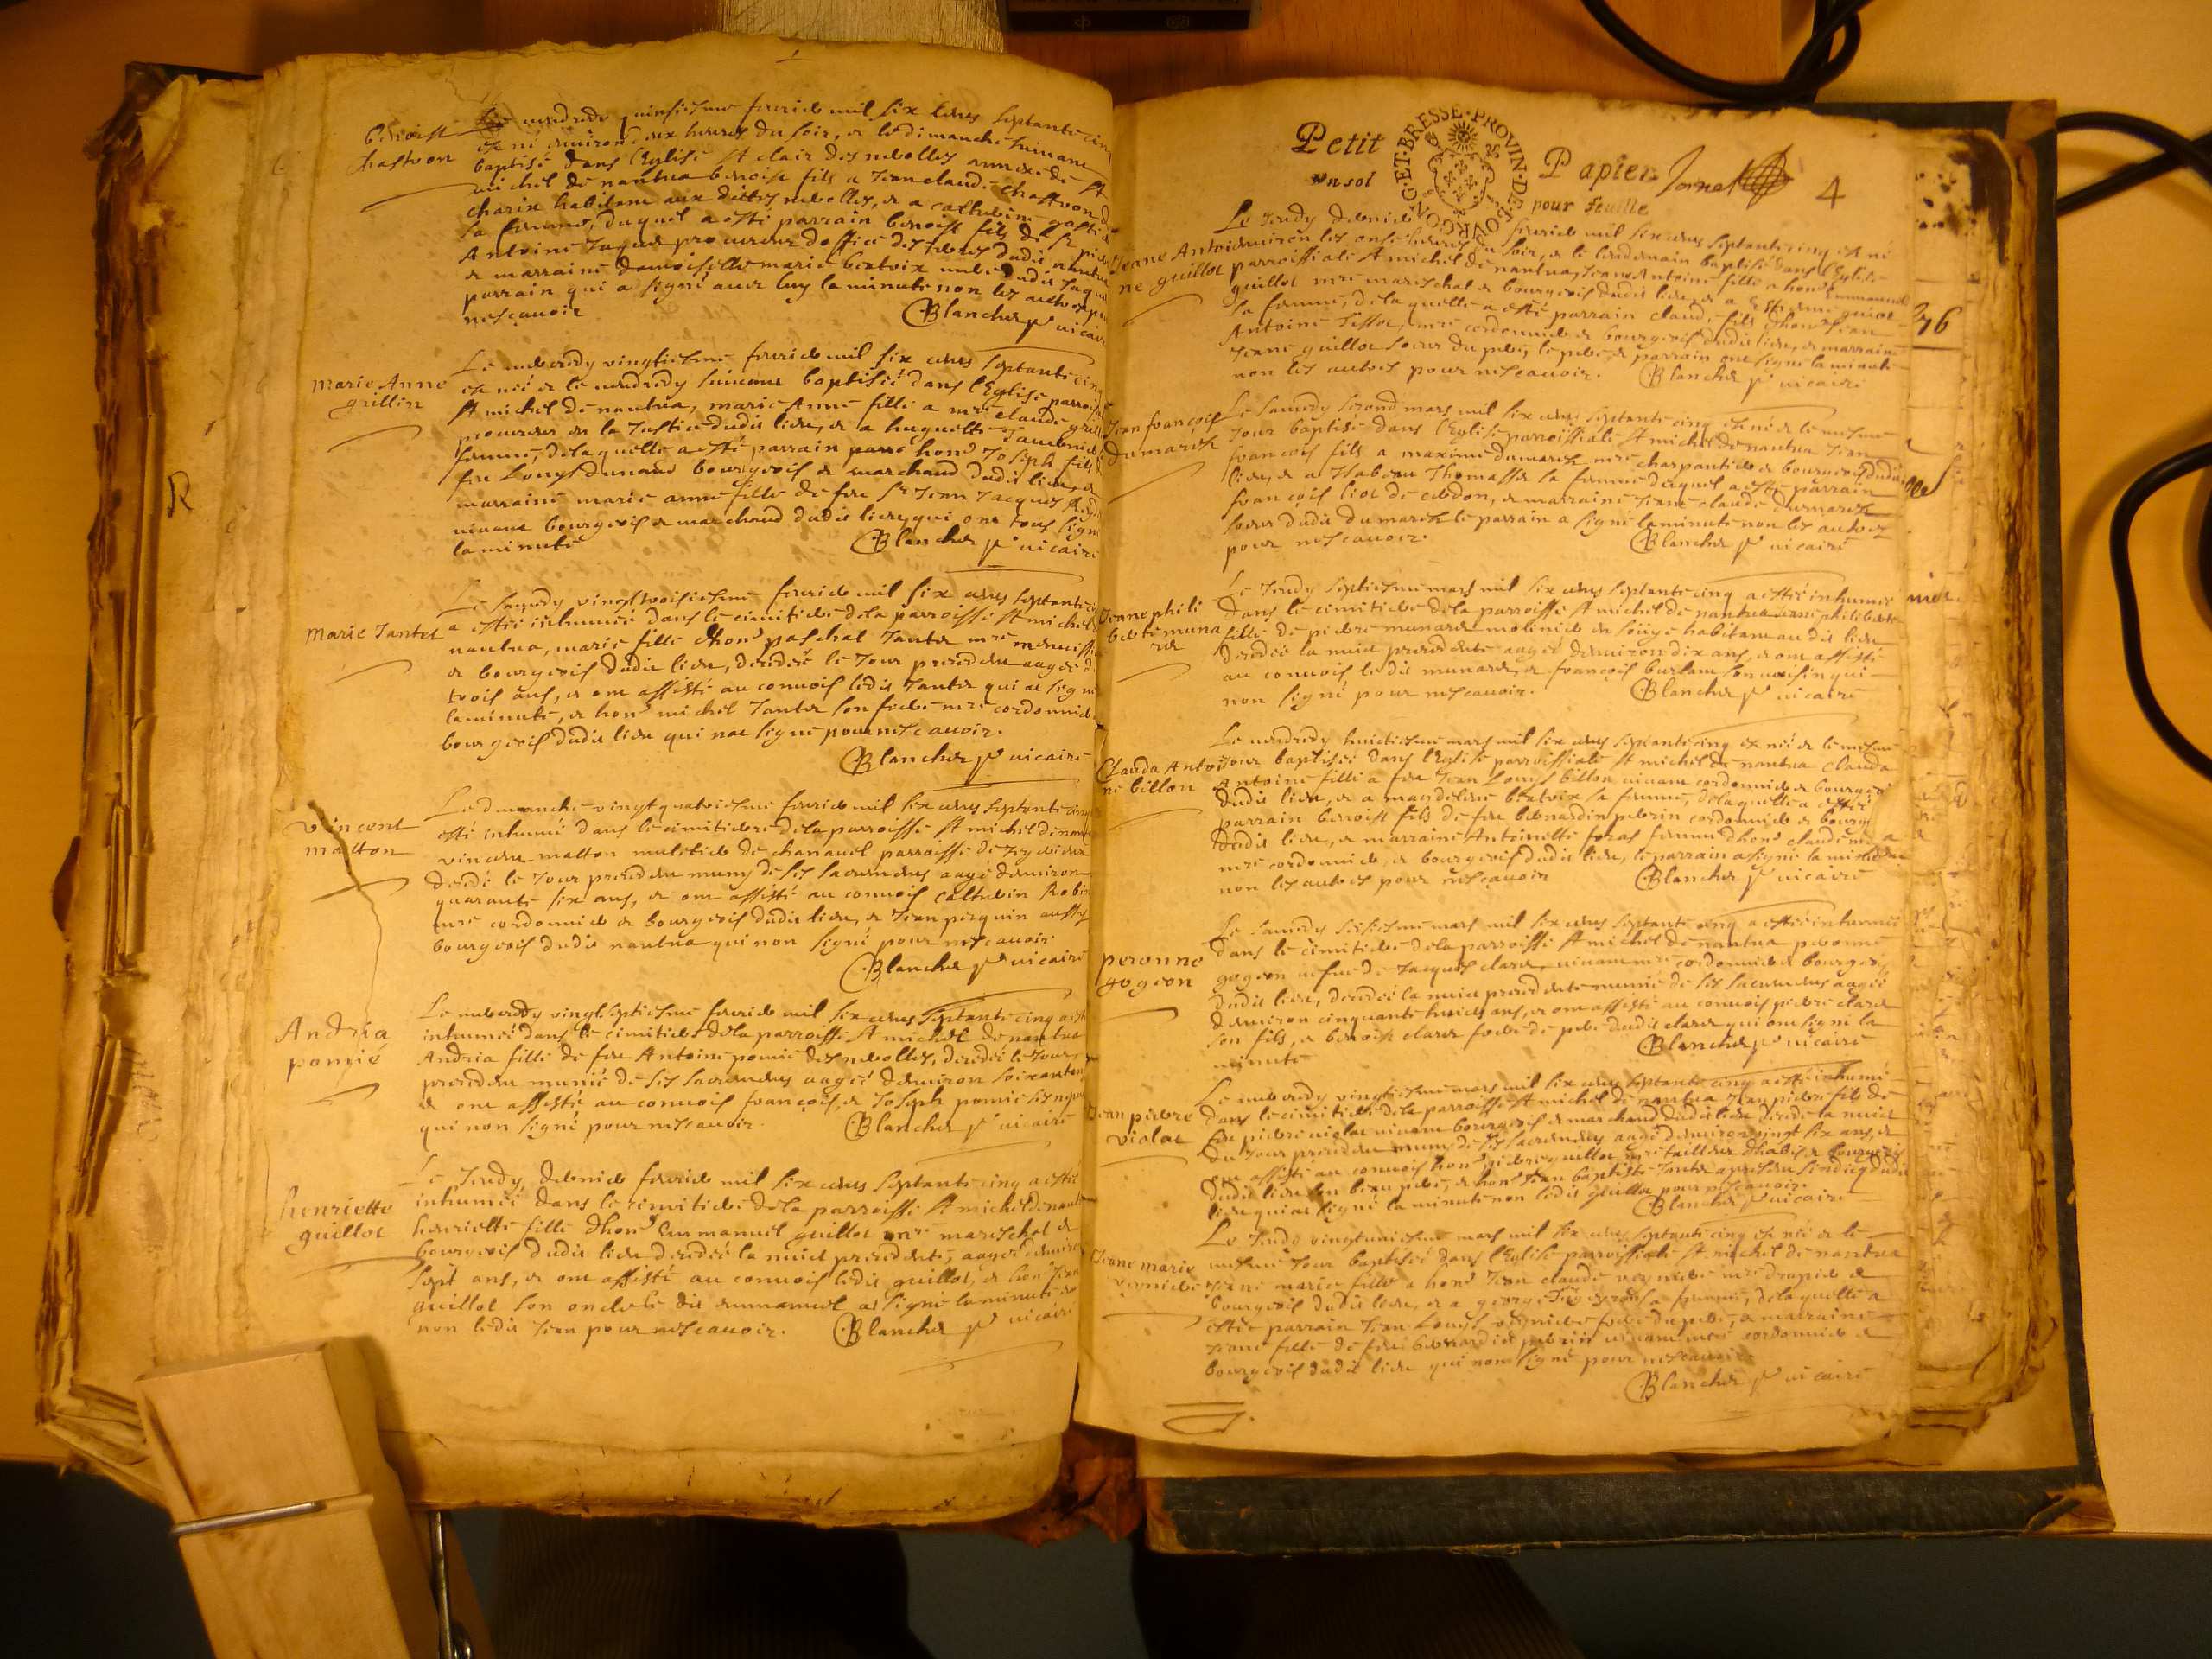 Benoist
chastron
Le vendredy quinsiesme febvrier mil six cents septante cinq
est né environ six heures du soir, et le dimanche suivant
baptisé dans l'Eglise St clair des nebolles annexe de St
michel de nantua benoist fils a Jean claude chastron
charix habitant aux dittes nebolles, et a catherine
sa femme, duquel a esté parrain benoist fils de Sr pierre
Antoine Jaquet procureur doffice des terres dudit nantua
et marraine damoiselle marie beatrix mere dudit Jaquet
parrain qui a signé avec luy la minute non les autres pour
nescavoir
Blanchet ptre vicaire
marie Anne
grillin
Le mercredy vingtiesme febvrier mil six cents septante cinq
est neé et le vendredy suivant baptiseé dans l'Eglise
St michel de nantua, marie Anne fille a mre claude
procureur en la Justice dudit lieu, et a huguette
femme, delaquelle a esté parrain honn Joseph fils
feu Louys dunand bourgeois et marchand dudit lieu, et
marraine marie anne fille de feu Sr Jean Jacques
vivant bourgeois et marchand dudit lieu, qui ont tous signé
la minute
Blanchet ptre vicaire
marie Jantet
Le samedy vingttroisiesme febvrier mil six cents septante
a estée inhumée dans le cimitiere dela parroisse St michel
nantua, marie fille dhonn paschal Jantet mre menuisier
et bourgeois dudit lieu, decedeé le Jour precedent aageé de
trois ans, et ont assisté au convois ledit Jantet qui at signé
laminute, et honn michel Jantet son frere mre cordonnier
bourgeois dudit lieu qui nat signé pour nescavoir.
Blanchet ptre vicaire
vincent
matton
Le dimanche vingtquatriesme febvrier mil six cents septante cinq
esté inhumé dans le cimitiere dela parroisse St michel de
vincent matton muletier de chanavel parroisse de
decedé le Jour precedent muny de ses sacrements aagé denviron
quarante six ans, et ont assisté au convois catherin Robin
mre cordonnier et bourgeois dudit lieu, et Jean pecquin aussy
bourgeois dudit nantua qui nont signé pour nescavoir
Blanchet ptre vicaire
Andria
pomié
Le mercredy vingtseptiesme febvrier mil six cents septante cinq a esté
inhumeé dans le cimitiere dela parroisse St michel de nantua
Andria fille de feu Antoine pomie des nebolles, decedeé le Jour
precedent munie de ses sacrements aageé denviron soixante
et ont assisté au convois françois, et Joseph pomie ses
qui nont signé pour nescavoir.
Blanchet ptre vicaire
henriette
guillot
Le Jeudy dernier febvrier mil six cents septante cinq a esté
inhumeé dans le cimitiere dela parroisse St michel de
henriette fille dhonn Emmanuel guillot mre mareschal et
bourgeois dudit lieu decedeé la nuict precedente, aageé denviron
sept ans, et ont assisté au convois ledit guillot, et honn Jean
guillot son oncle le dit emmanuel at signé laminute et
non ledit Jean pour nescavoir.
Blanchet ptre vicaire
Petit Papier
un sol pour feuille
BOVRGOG·ET·BRESSE·PROVIN·DE
4
Jeane Antoi
ne guillot
Le Jeudy dernier febvrier mil six cents septante cinq est né
environ les onse heures du soir, et le lendemain baptisé dans l'Eglise
parroissiale St michel de nantua, Jeane Antoine fille a honn Emmanuel
guillot mre mareschal et bourgeois dudit lieu, et a
sa femme, delaquelle a esté parrain claude fils dhonn Jean
Antoine Tissot, mre cordonnier et bourgeois dudit lieu, et marraine
Jeane guillot soeur du pere, le pere, et parrain ont signé la minute
non les autres pour nescavoir.
Blanchet ptre vicaire
76
Jean françois
Dumarest
Le samedy second mars mil six cents septante cinq est né et le mesme
Jour baptisé dans l'Eglise parroissiale St michel de nantua Jean
francois fils a maxime dumarest mre charpantier et bourgeois dudit
lieu, et a Isabeau Thomasset sa femme duquel a esté parrain
françois liot de cerdon, et marraine Jeane claude dumarest
soeur dudit dumarest le parrain a signé laminute non les autres
pour nescavoir.
Blanchet ptre vicaire
Jeane phili
berte muna
ret
Le Jeudy septiesme mars mil six cents septante cinq a esté inhumeé
dans le cimitiere dela parroisse St michel de nantua Jeane philiberte
fille de pierre munaret molinier habitant au dit lieu
decedeé la nuict precedente aageé denviron dix ans, et ont assisté
au convois ledit munaret, et françois son voisin qui
nont signé pour nescavoir.
Blanchet ptre vicaire
Clauda Antoi
ne billon
Le vendredy huictiesme mars mil six cents septante cinq est neé et le mesme
Jour baptiseé dans l'Eglise parroissiale St michel de nantua Clauda
Antoine fille a feu Jean Louys billon vivant cordonnier et bourgeois
dudit lieu, et a magdeleine beatrix sa femme, delaquelle a esté
parrain benoist fils de feu bernardin perrin cordonnier et bourg
dudit lieu, et marraine Antoinette foras femme dhonn claude
mre cordonnier, et bourgeois dudit lieu, le parrain a signé la minute
non les autres pour nescavoir
Blanchet ptre vicaire
peronne
gogeon
Le samedy seisiesme mars mil six cents septante cinq a esté inhumeé
dans le cimitiere dela parroisse St michel de nantua peronne
gogeon vefve de Jacques claret, vivant mre cordonnier et bourgeois
dudit lieu, decedeé la nuict precedente munie de ses sacrements aageé
denviron cinquante huict ans, et ont assisté au convois pierre claret
son fils, et benoist claret frere de pere dudit claret qui ont signé la
minute
Blanchet ptre vicaire
Jean pierre
violat
Le mercredy vingtiesme mars mil six cents septante cinq a esté inhumé
dans le cimitiere dela parroisse St michel de nantua Jean pierre fils de
feu pierre violat vivant bourgeois et marchand dudit lieu decedé la nuict
du Jour precedent muny de ses sacrements aagé denviron vingt six ans, et
ont assisté au convois honn pierre guillot mre tailleur dhabits et bourgeois
dudit lieu son beau pere, et honn Jean baptiste Jantet
lieu qui at signé la minute non ledit guillot pour nescavoir.
Blanchet ptre vicaire
Jeane marie
Le Jeudy vingtuniesme mars mil six cents septante cinq est neé et le
mesme Jour baptiseé dans l'Eglise parroissiale St michel de nantua
Jeane marie fille a honn Jean claude mre drapier et
bourgeois dudit lieu, et a sa femme, delaquelle a
esté parrain Jean Louys frere du pere, et marraine
Jeane fille de feu bernardin perrin vivant mre cordonnier et
bourgeois dudit lieu qui nont signé pour nescavoir
Blanchet ptre vicaire